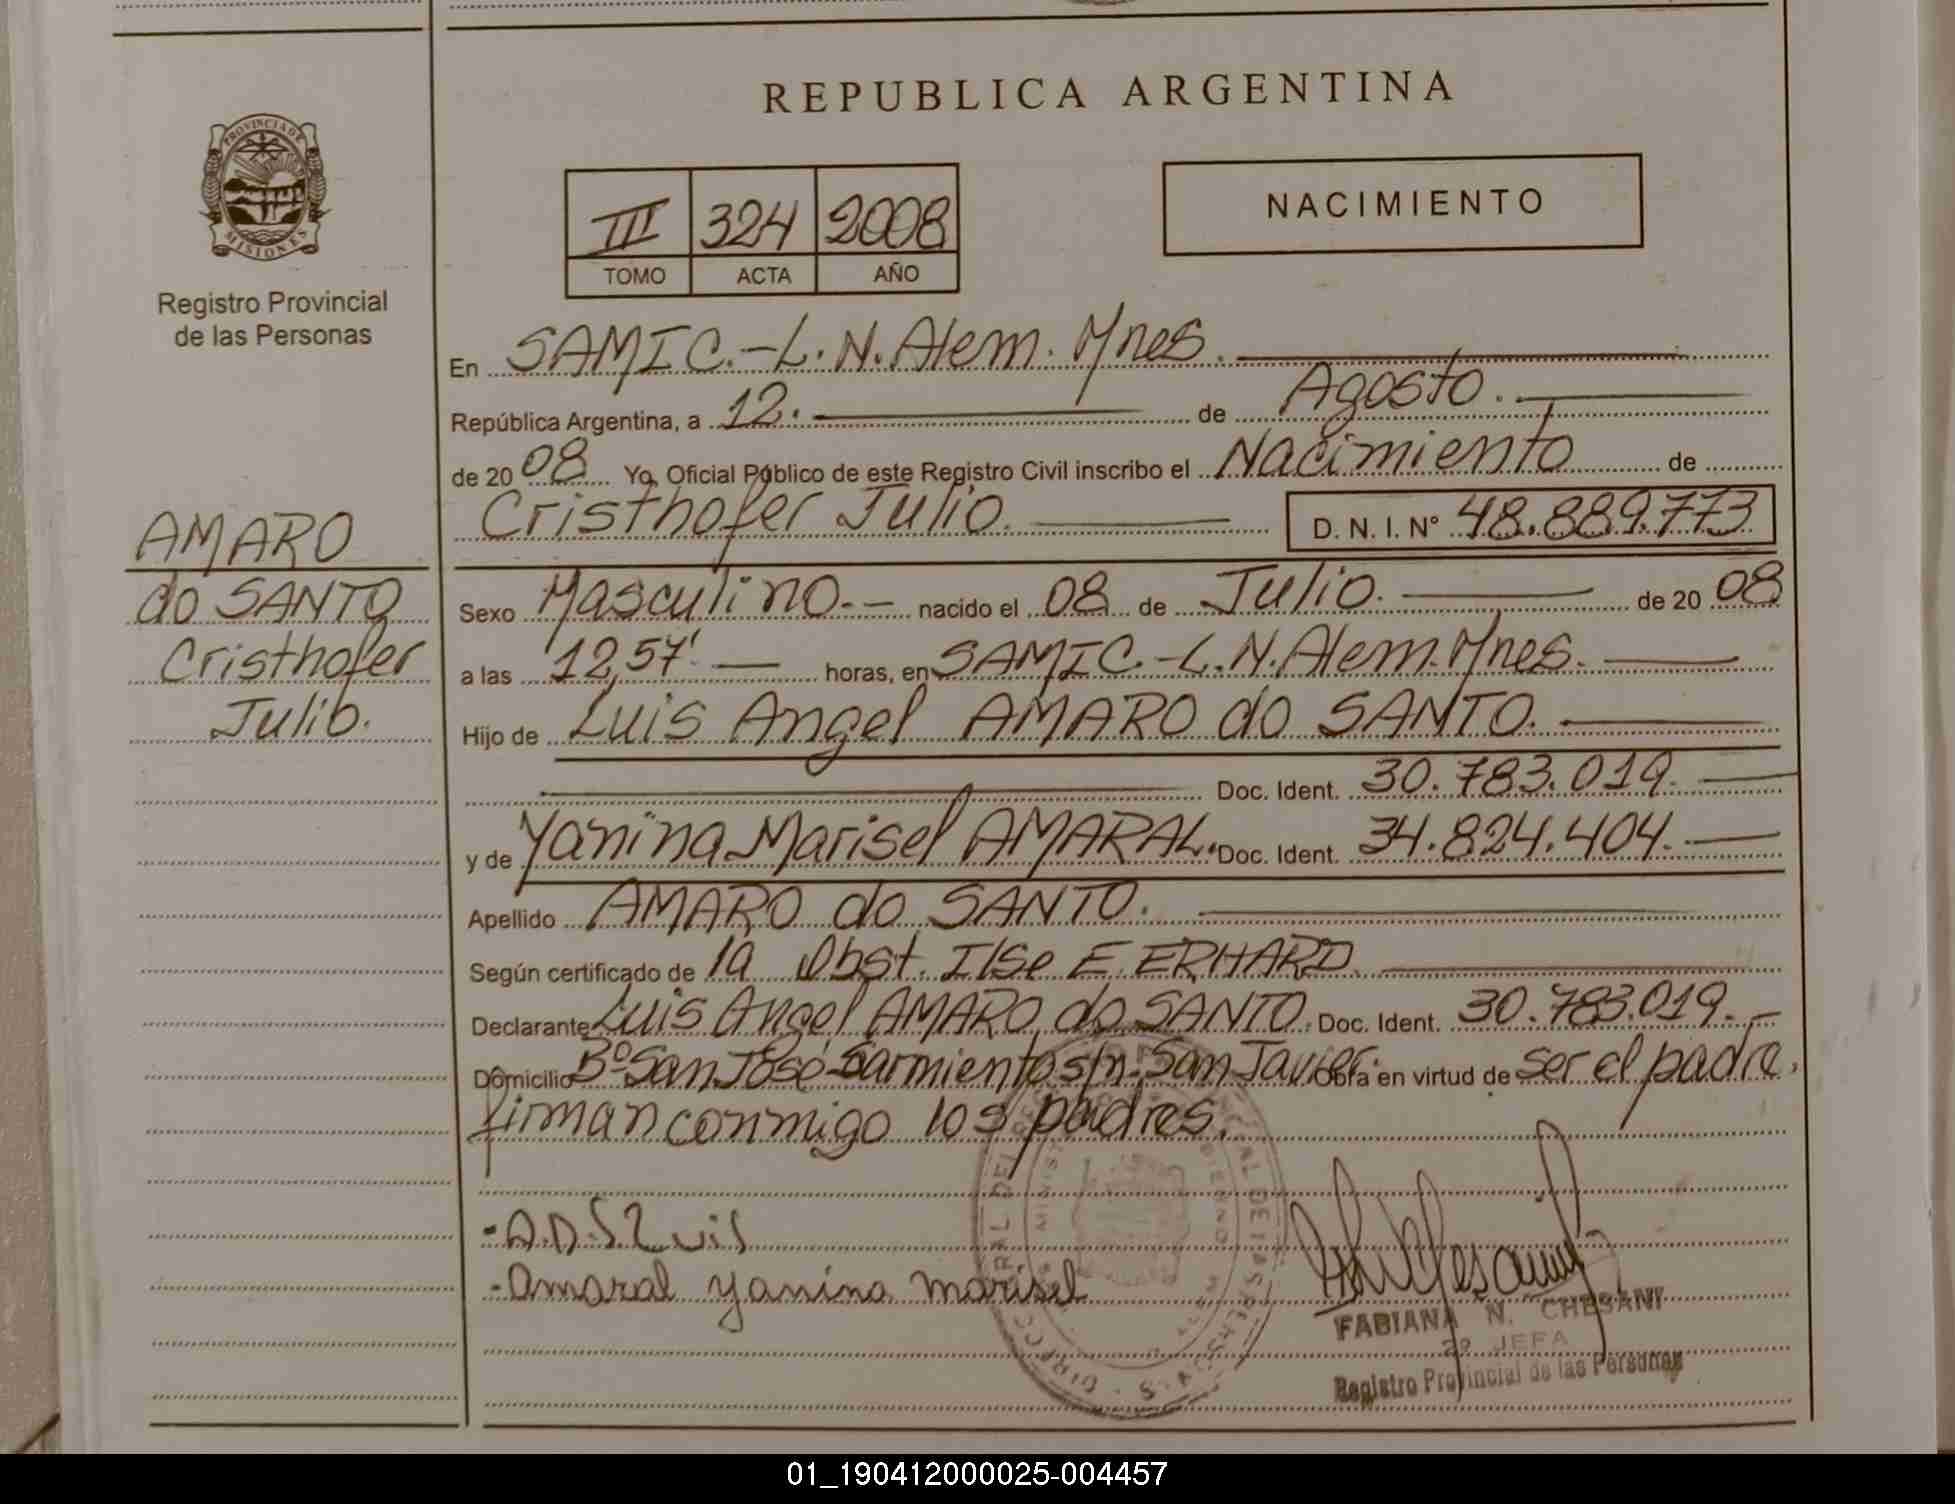 REPUBLICA ARGENTINA
PROVINCIA DE
MISIONES
Registro Provincial
de las Personas
III 324 2008
TOMO ACTA AÑO
NACIMIENTO
En SAMIC.-L.N.Alem.Mnes.
República Argentina, a 12. de Agosto.
de 2008 Yo, Oficial Público de este Registro Civil inscribo el Nacimiento de
Cristhofer Julio. D. N. I. Nº 48.889.773
AMARO
do SANTO
Cristhofer
Julio.
Sexo Masculino.- nacido el 08 de Julio. de 2008
a las 12,57' horas, en SAMIC.-L.N.Alem.Mnes.
Hijo de Luis Angel AMARO do SANTO.
Doc. Ident. 30.783.019.
y de Yanina Marisel AMARAL. Doc. Ident. 34.824.404.
Apellido AMARO do SANTO.
Según certificado de la Obst. Ilse E. ERHARD
Declarante Luis Angel AMARO do SANTO. Doc. Ident. 30.783.019.-
Domicilio Bº San José-Sarmiento s/n. San Javier. Obra en virtud de ser el padre.
firman conmigo los padres.
-A.D.S Luis
-Amaral yanina marisel
FABIANA N. CHESANI
2º JEFA
Registro Provincial de las Personas
01_190412000025-004457